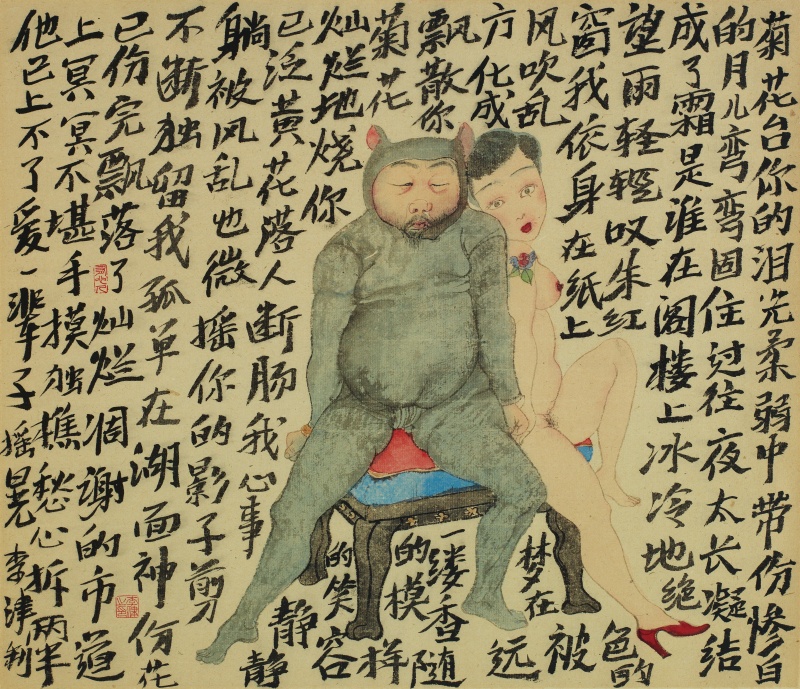 菊花台你的泪光柔弱中带伤惨白
的月儿弯弯固住过往夜太长凝结
成了霜是谁在阁楼上冰冷地绝
望雨轻轻叹朱红色的
窗我依身在纸上被
风吹乱梦在远
方化成一缕香随
风飘散你的模样
菊花
灿烂地烧你的笑容
已泛黄花落人断肠我心事静静
躺被风乱也微摇你的影子剪
不断独留我孤单在湖面神伤花
已伤完飘落了灿烂凋谢的市道
上冥冥不堪手摸独愁心拆两半
他已上不了爱一辈子摇晃
李津制